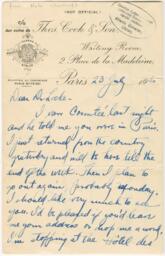 (NOT OFFICIAL)
Thos. Cook & Son
Writing Room
2, Place de la Madeleine,
Paris 23 July
Dear Dr. Locke -
I saw Countee last night
and he told me you were in Paris.
I just returned from the country
yesterday and will be here till the
end of the week. Then I plan to
go out again probably Monday.
I should like very much to see
you. I'd be pleased if you'd leave
me your address or drop me a word.
I'm stopping at the Hotel des